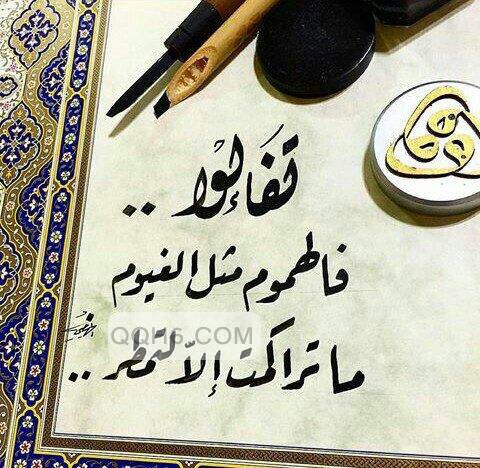 تفاءلوا ..
فالهموم مثل الغيوم
ما تراكمت إلا لتمطر ..
QQH6.COM